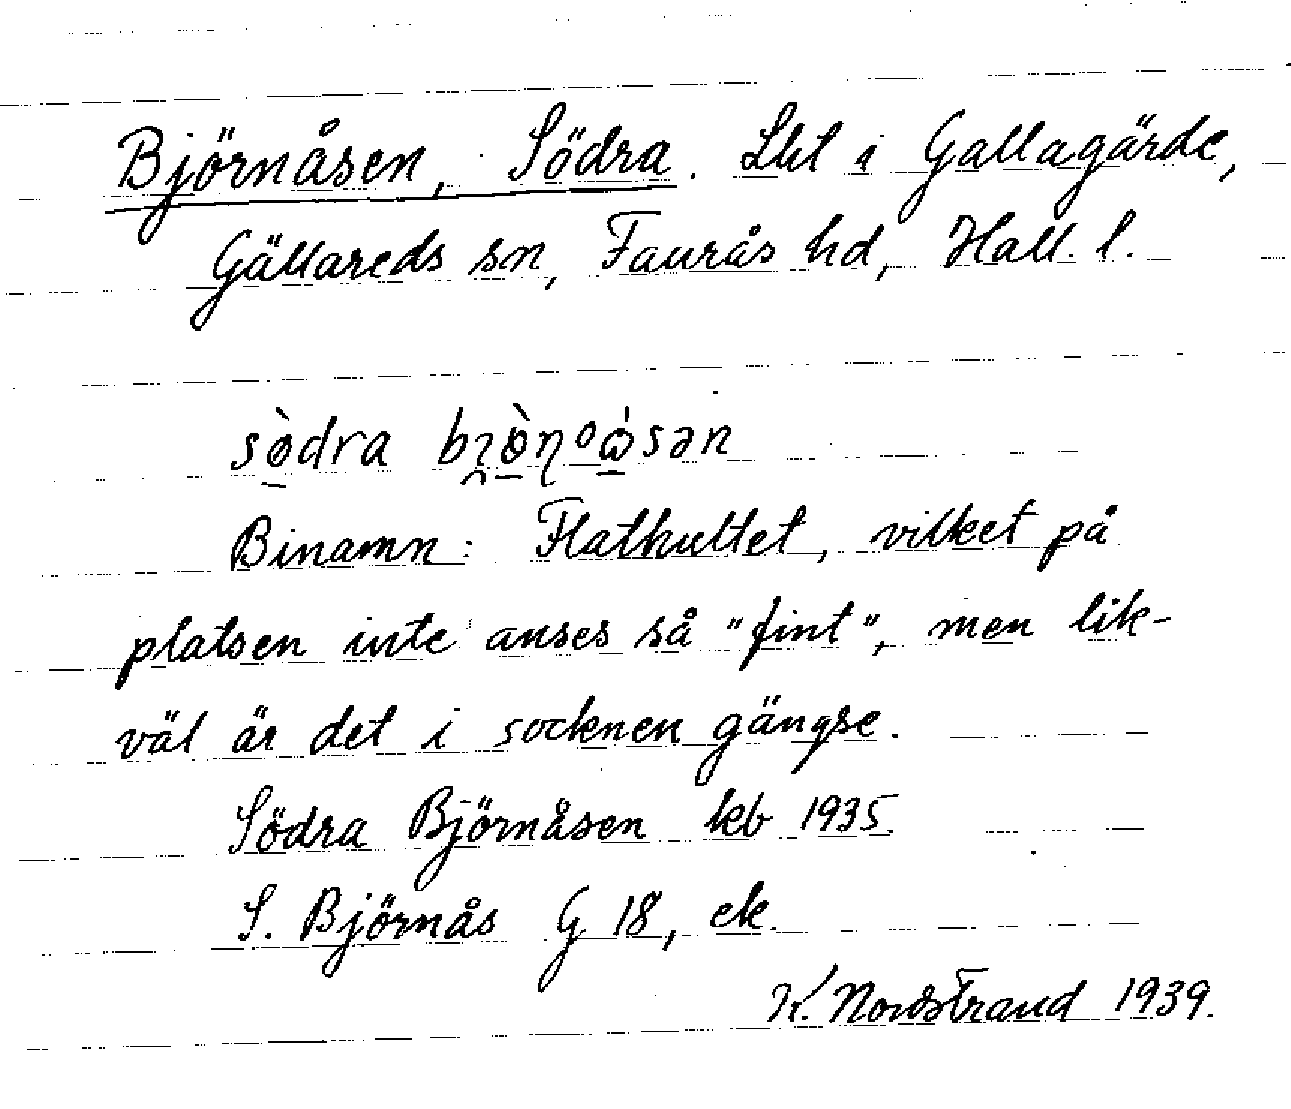 Björnåsen, Södra. Lht i Gallagärde,
Gällareds sn, Faurås hd, Hall. l.
sø̀dra bʒø̀ɳᵒω̇sən
Binamn: Flathultet, vilket på
platsen inte anses så "fint", men lik-
väl är det i socknen gängse.
Södra Björnåsen kb 1935.
S. Björnås G 18, ek.
K. Nordstrand 1939.